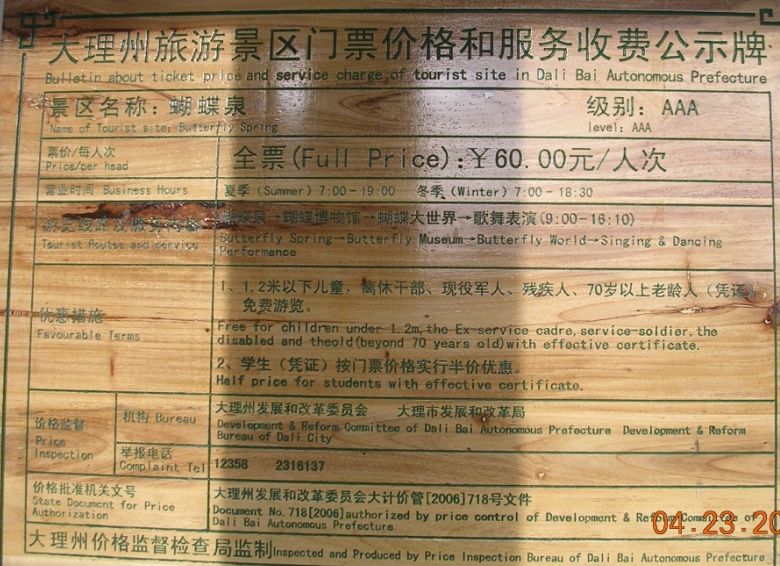 大理州旅游景区门票价格和服务收费公示牌
Bulletin about ticket price and service charge of tourist site in Dali Bai Autonomous Prefecture
景区名称：蝴蝶泉 级别：AAA
Name of Tourist site: Butterfly Spring level: AAA
票价/每人次 全票(Full Price):￥60.00元/人次
Price/per head
营业时间 Business Hours 夏季（Summer）7:00-19:00 冬季（Winter）7:00-18:30
游览线路及服务内容 蝴蝶泉→蝴蝶博物馆→蝴蝶大世界→歌舞表演(9:00-16:10)
Tourist Routes and service Butterfly Spring→Butterfly Museum→Butterfly World→Singing & Dancing
Performance
优惠措施
Favourable Terms
1、1.2米以下儿童，离休干部、现役军人、残疾人、70岁以上老龄人（凭证）
免费游览。
Free for children under 1.2m, the Ex-service cadre, service-soldier, the
disabled and theold(beyond 70 years old)with effective certificate.
2、学生（凭证）按门票价格实行半价优惠。
Half price for students with effective certificate.
价格监督
Price
Inspection
机构 Bureau
大理州发展和改革委员会 大理市发展和改革局
Development & Reform Committee of Dali Bai Autonomous Prefecture Development & Reform
Bureau of Dali City
举报电话
Complaint Tel 12358 2316137
价格批准机关文号
State Document for Price
Authorization
大理州发展和改革委员会大计价管[2006]718号文件
Document No.718[2006]authorized by price control of Development & Reform Committee of
Dali Bai Autonomous Prefecture
大理州价格监督检查局监制 Inspected and Produced by Price Inspection Bureau of Dali Bai Autonomous Prefecture
04.23.20